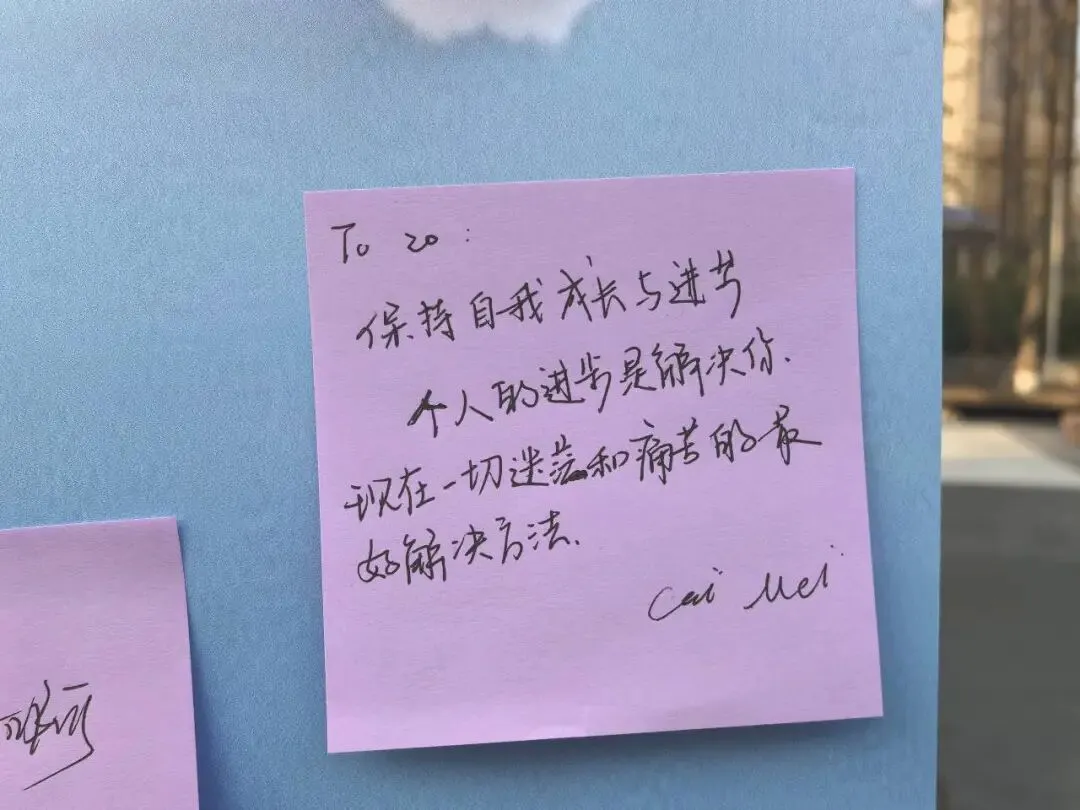 To 20:
保持自我成长与进步
个人的进步是解决你
现在一切迷茫和痛苦的最
好解决方法.
Cai Mei